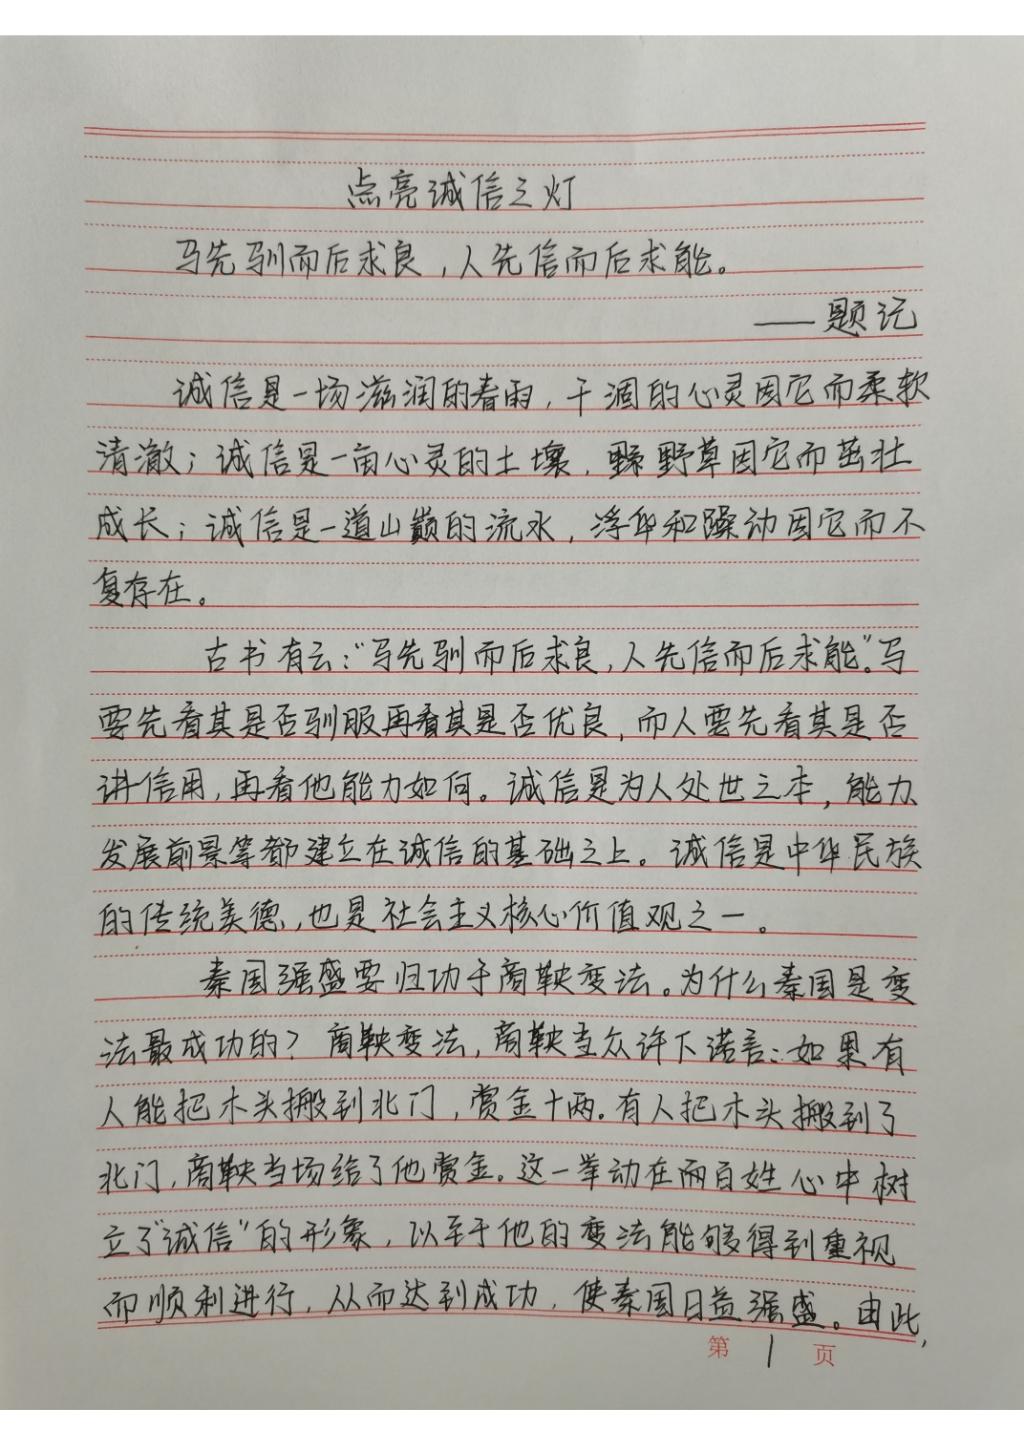 点亮诚信之灯
马先驯而后求良，人先信而后求能。
——题记
诚信是一场滋润的春雨，干涸的心灵因它而柔软
清澈；诚信是一亩心灵的土壤，野草因它而茁壮
成长；诚信是一道山巅的流水，浮华和躁动因它而不
复存在。
古书有云：“马先驯而后求良，人先信而后求能”。马
要先看其是否驯服再看其是否优良，而人要先看其是否
讲信用，再看他能力如何。诚信是为人处世之本，能力、
发展前景等都建立在诚信的基础之上。诚信是中华民族
的传统美德，也是社会主义核心价值观之一。
秦国强盛要归功于商鞅变法。为什么秦国是变
法最成功的？商鞅变法，商鞅当众许下诺言：如果有
人能把木头搬到北门，赏金十两。有人把木头搬到了
北门，商鞅当场给了他赏金。这一举动在百姓心中树
立了“诚信”的形象，以至于他的变法能够得到重视
而顺利进行，从而达到成功，使秦国日益强盛。由此，
第 1 页